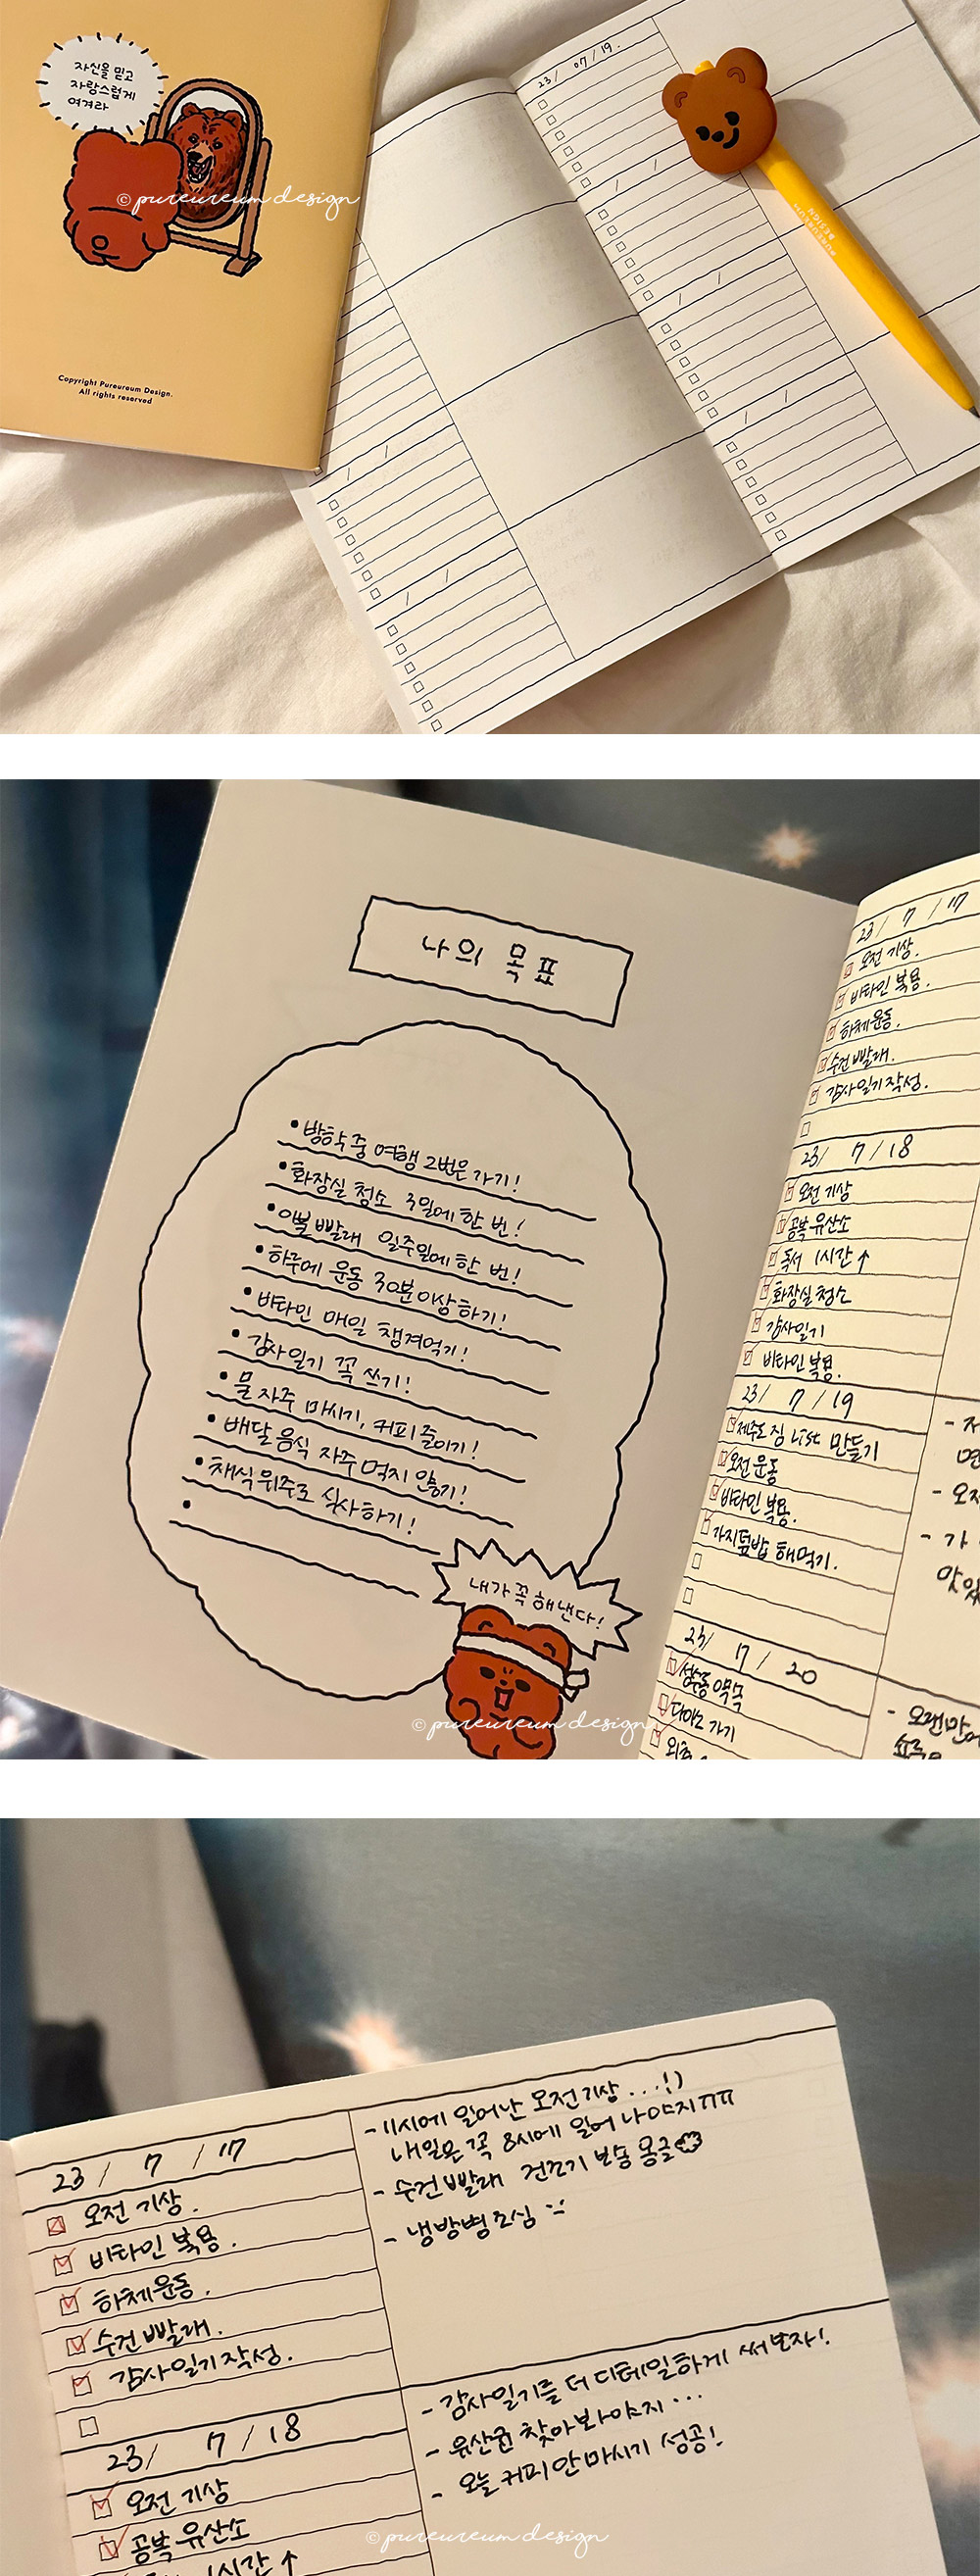 자신을 믿고
자랑스럽게
여겨라
© pureureum design
Copyright Pureureum Design.
All rights reserved
23 / 07 / 19.
PUREUREUM
DESIGN
나의 목표
• 방학 중 여행 2번은 가기!
• 화장실 청소 3일에 한 번!
• 이불 빨래 일주일에 한 번!
• 하루에 운동 30분 이상 하기!
• 비타민 매일 챙겨먹기!
• 감사일기 꼭 쓰기!
• 물 자주 마시기, 커피 줄이기!
• 배달 음식 자주 먹지 않기!
• 채식 위주로 식사하기!
•
내가 꼭 해낸다!
© pureureum design
23 / 7 / 17
오전 기상.
비타민 복용.
하체운동.
수건 빨래.
감사일기 작성.
23 / 7 / 18
오전 기상
공복 유산소
독서 1시간 ↑
화장실 청소
감사일기
비타민 복용.
23 / 7 / 19
제주도 짐 list 만들기
오전 운동
비타민 복용.
가지덮밥 해먹기.
23 / 7 / 20
성수동 약속
다이소 가기
- 오랜만에
23 / 7 / 17
오전 기상.
비타민 복용.
하체운동.
수건 빨래.
감사일기 작성.
23 / 7 / 18
오전 기상
공복 유산소
1시간 ↑
- 11시에 일어난 오전 기상...!)
내일은 꼭 8시에 일어나야지 ㅠㅠ
- 수건 빨래 건조기 뽀송 몽글
- 냉방병 조심
- 감사일기를 더 디테일하게 써보자!
- 유산균 찾아봐야지...
- 오늘 커피 안마시기 성공!
© pureureum design